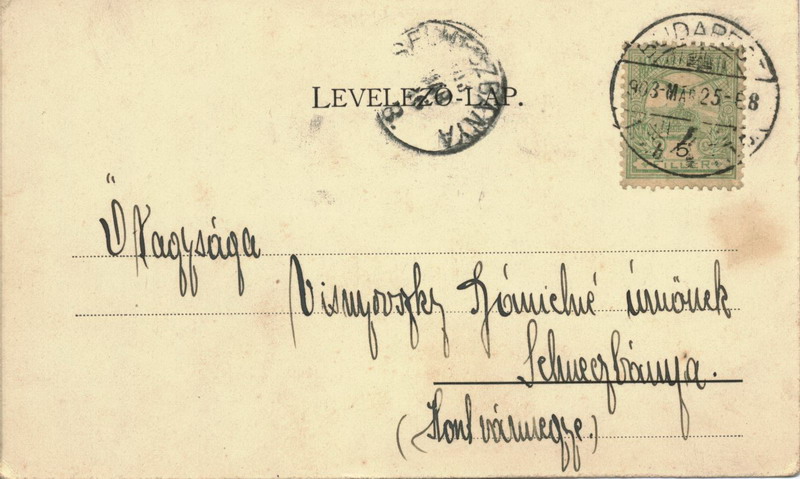 BUDAPEST
903 MAR 25
SELMECZBÁNYA
LEVELEZŐ-LAP.
6
FILLÉR
Ő Nagysága
Visnyovszky
úrnőnek
Selmeczbánya.
(Hont vármegye.)